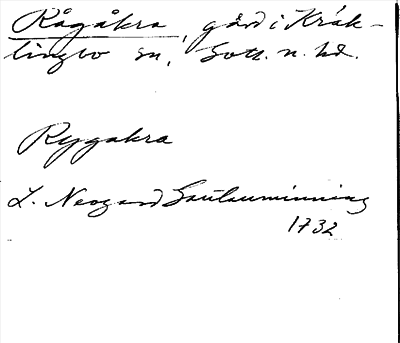 Rågåkra, gård i Kräk-
lingbo sn, Gotl. n. hd.
Rygakra
L. Neogard Gautauminning
1732